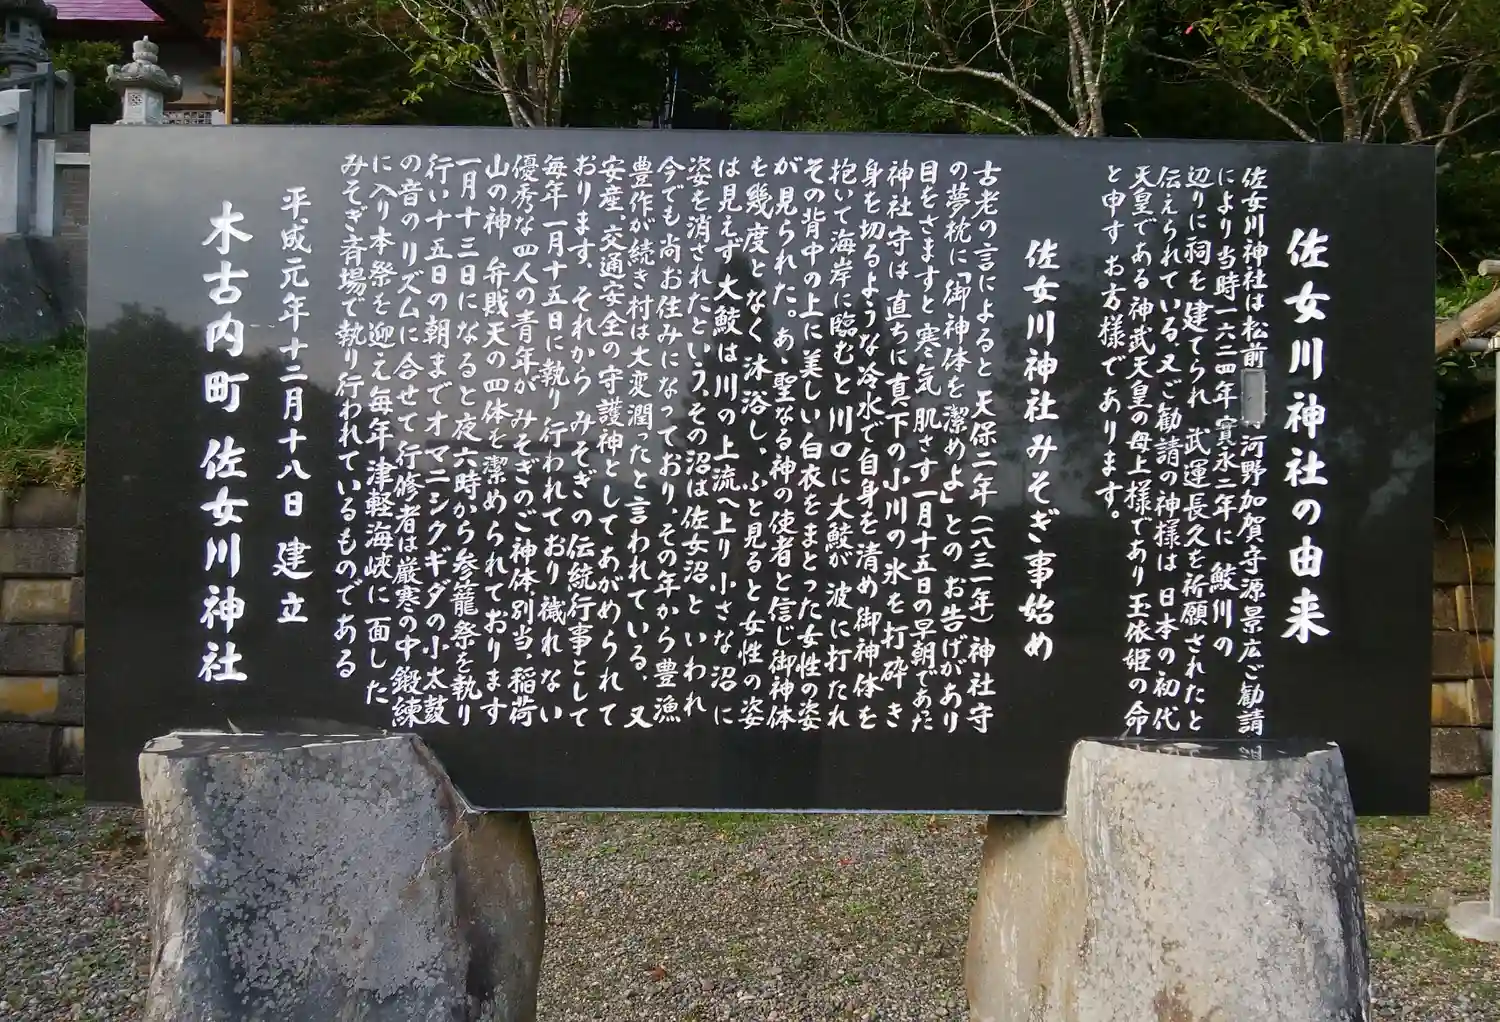 佐女川神社の由来
佐女川神社は松前 河野加賀守源景広ご勧請
により当時一六二四年寛永二年に 鮫川の
辺りに祠を建てられ 武運長久を祈願されたと
伝えられている。又ご勧請の神様は 日本の初代
天皇である神武天皇の母上様であり玉依姫の命
と申すお方様であります。
佐女川神社みそぎ事始め
古老の言によると 天保二年(一八三一年)神社守
の夢枕に「御神体を潔めよ」とのお告げがあり
目をさますと 寒気 肌さす一月十五日の早朝であた
神社守は直ちに真下の小川の氷を打砕き
身を切るような冷水で自身を清め御神体を
抱いて海岸に臨むと川口に大鮫が 波に打たれ
その背中の上に美しい白衣をまとった女性の姿
が見られた。あゝ聖なる神の使者と信じ御神体
を幾度となく 沐浴し、ふと見ると女性の姿
は見えず 大鮫は川の上流へ上り小さな沼に
姿を消されたという。その沼は佐女沼といわれ
今でも尚お住みになっており、その年から豊漁
豊作が続き村は大変潤ったと言われている。又
安産、交通安全の守護神としてあがめられて
おります。それから みそぎの伝統行事として
毎年 一月十五日に執り行われており 穢れない
優秀な四人の青年がみそぎのご神体、別当、稲荷、
山の神 弁財天の四体を潔められております
一月十三日になると夜六時から参籠祭を執り
行い十五日の朝までオマニシクギダの小太鼓
の音のリズムに合せて 行修者は厳寒の中 鍛練
に入り本祭を迎え毎年津軽海峡に面した
みそぎ斉場で執り行われているものである
平成元年十二月十八日 建立
木古内町 佐女川神社